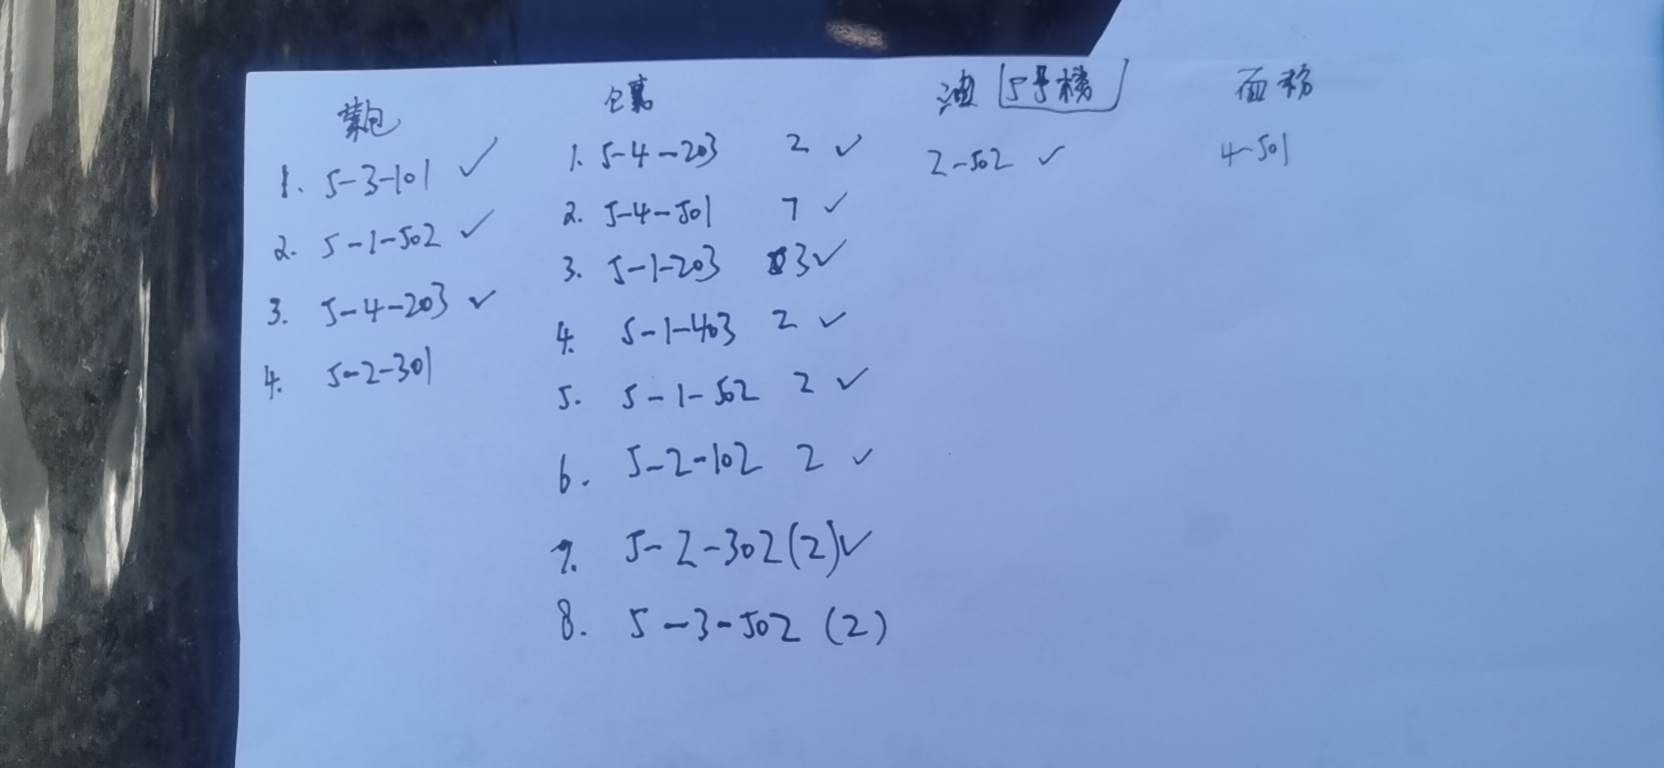 菜包
1. 5-3-101 ✓
2. 5-1-502 ✓
3. 5-4-203 ✓
4. 5-2-301
1. 5-4-203 2 ✓
2. 5-4-501 7 ✓
3. 5-1-203 3 ✓
4. 5-1-403 2 ✓
5. 5-1-502 2 ✓
6. 5-2-102 2 ✓
7. 5-2-302 (2) ✓
8. 5-3-502 (2)
油 5号楼
2-502 ✓
面粉
4-501